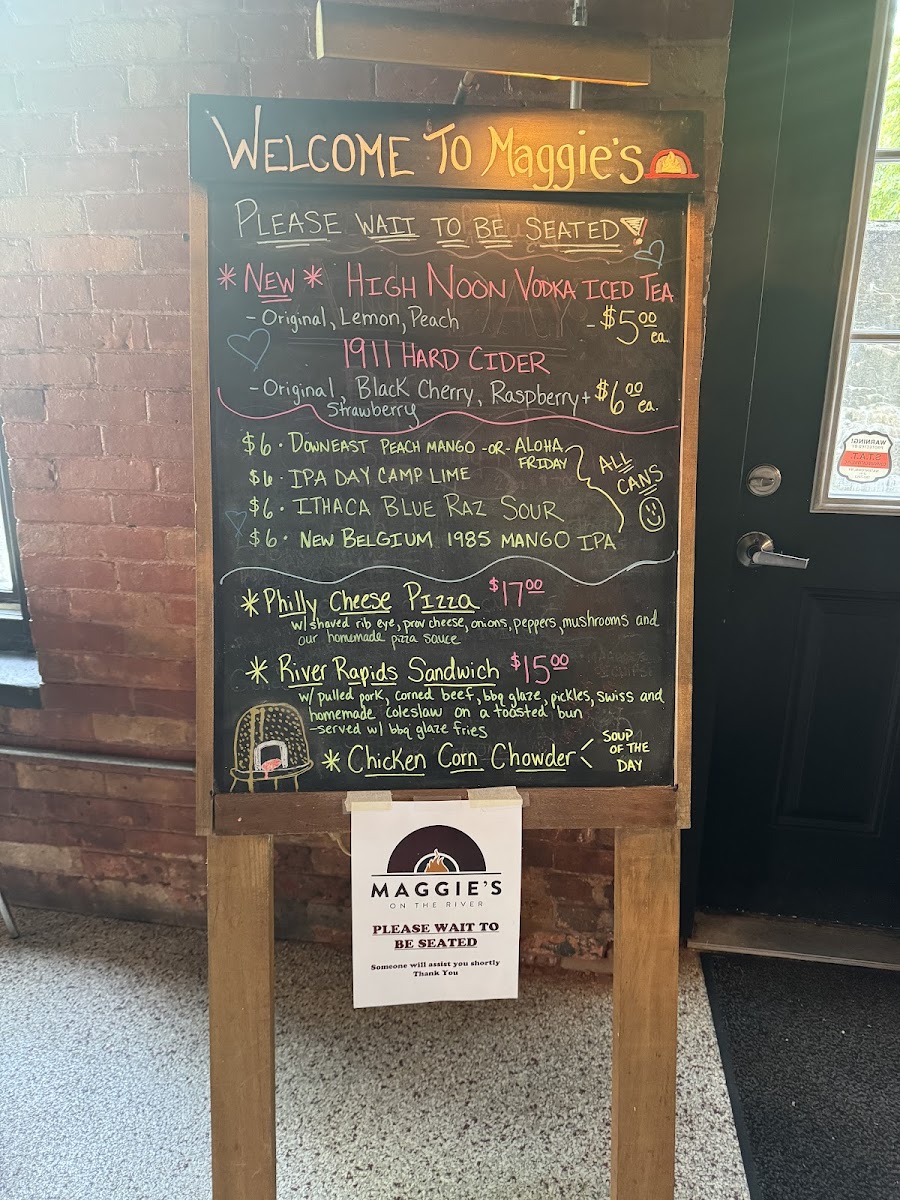 WELCOME TO Maggie's
PLEASE WAIT TO BE SEATED!
* NEW * HIGH NOON VODKA ICED TEA
- Original, Lemon, Peach - $5.00 ea.
1911 HARD CIDER
- Original, Black Cherry, Raspberry + $6.00 ea.
Strawberry
$6 · DOWNEAST PEACH MANGO -OR- ALOHA
FRIDAY
$6 · IPA DAY CAMP LIME
ALL
CANS
$6 · ITHACA BLUE RAZ SOUR
$6 · NEW BELGIUM 1985 MANGO IPA
* Philly Cheese Pizza $17.00
w/ shaved rib eye, prov cheese, onions, peppers, mushrooms and
our homemade pizza sauce
* River Rapids Sandwich $15.00
w/ pulled pork, corned beef, bbq glaze, pickles, swiss and
homemade coleslaw on a toasted bun
- served w/ bbq glaze fries
* Chicken Corn Chowder
SOUP
OF THE
DAY
MAGGIE'S
ON THE RIVER
PLEASE WAIT TO
BE SEATED
Someone will assist you shortly
Thank You
WARNING!